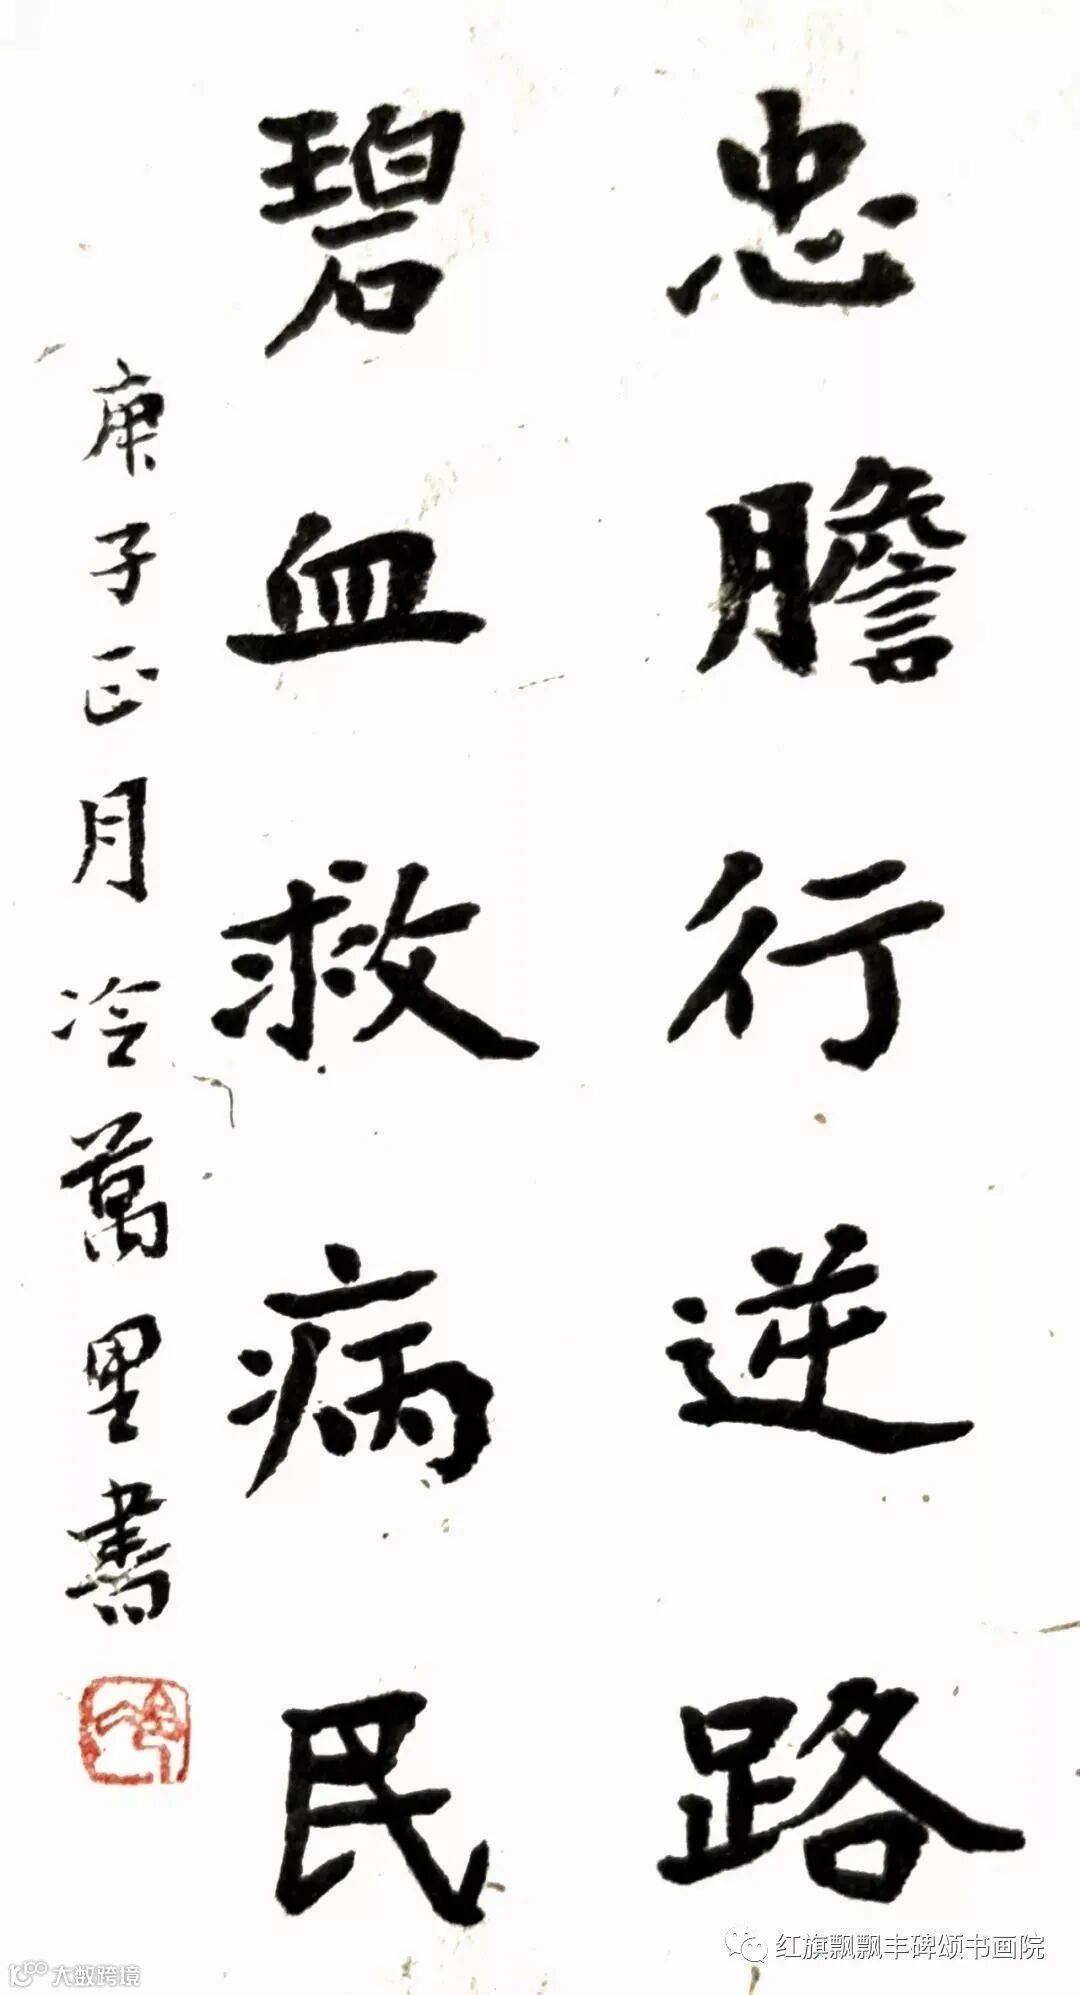 忠膽行逆路
碧血救病民
庚子正月冷萬里書
红旗飘飘丰碑颂书画院
大数跨境